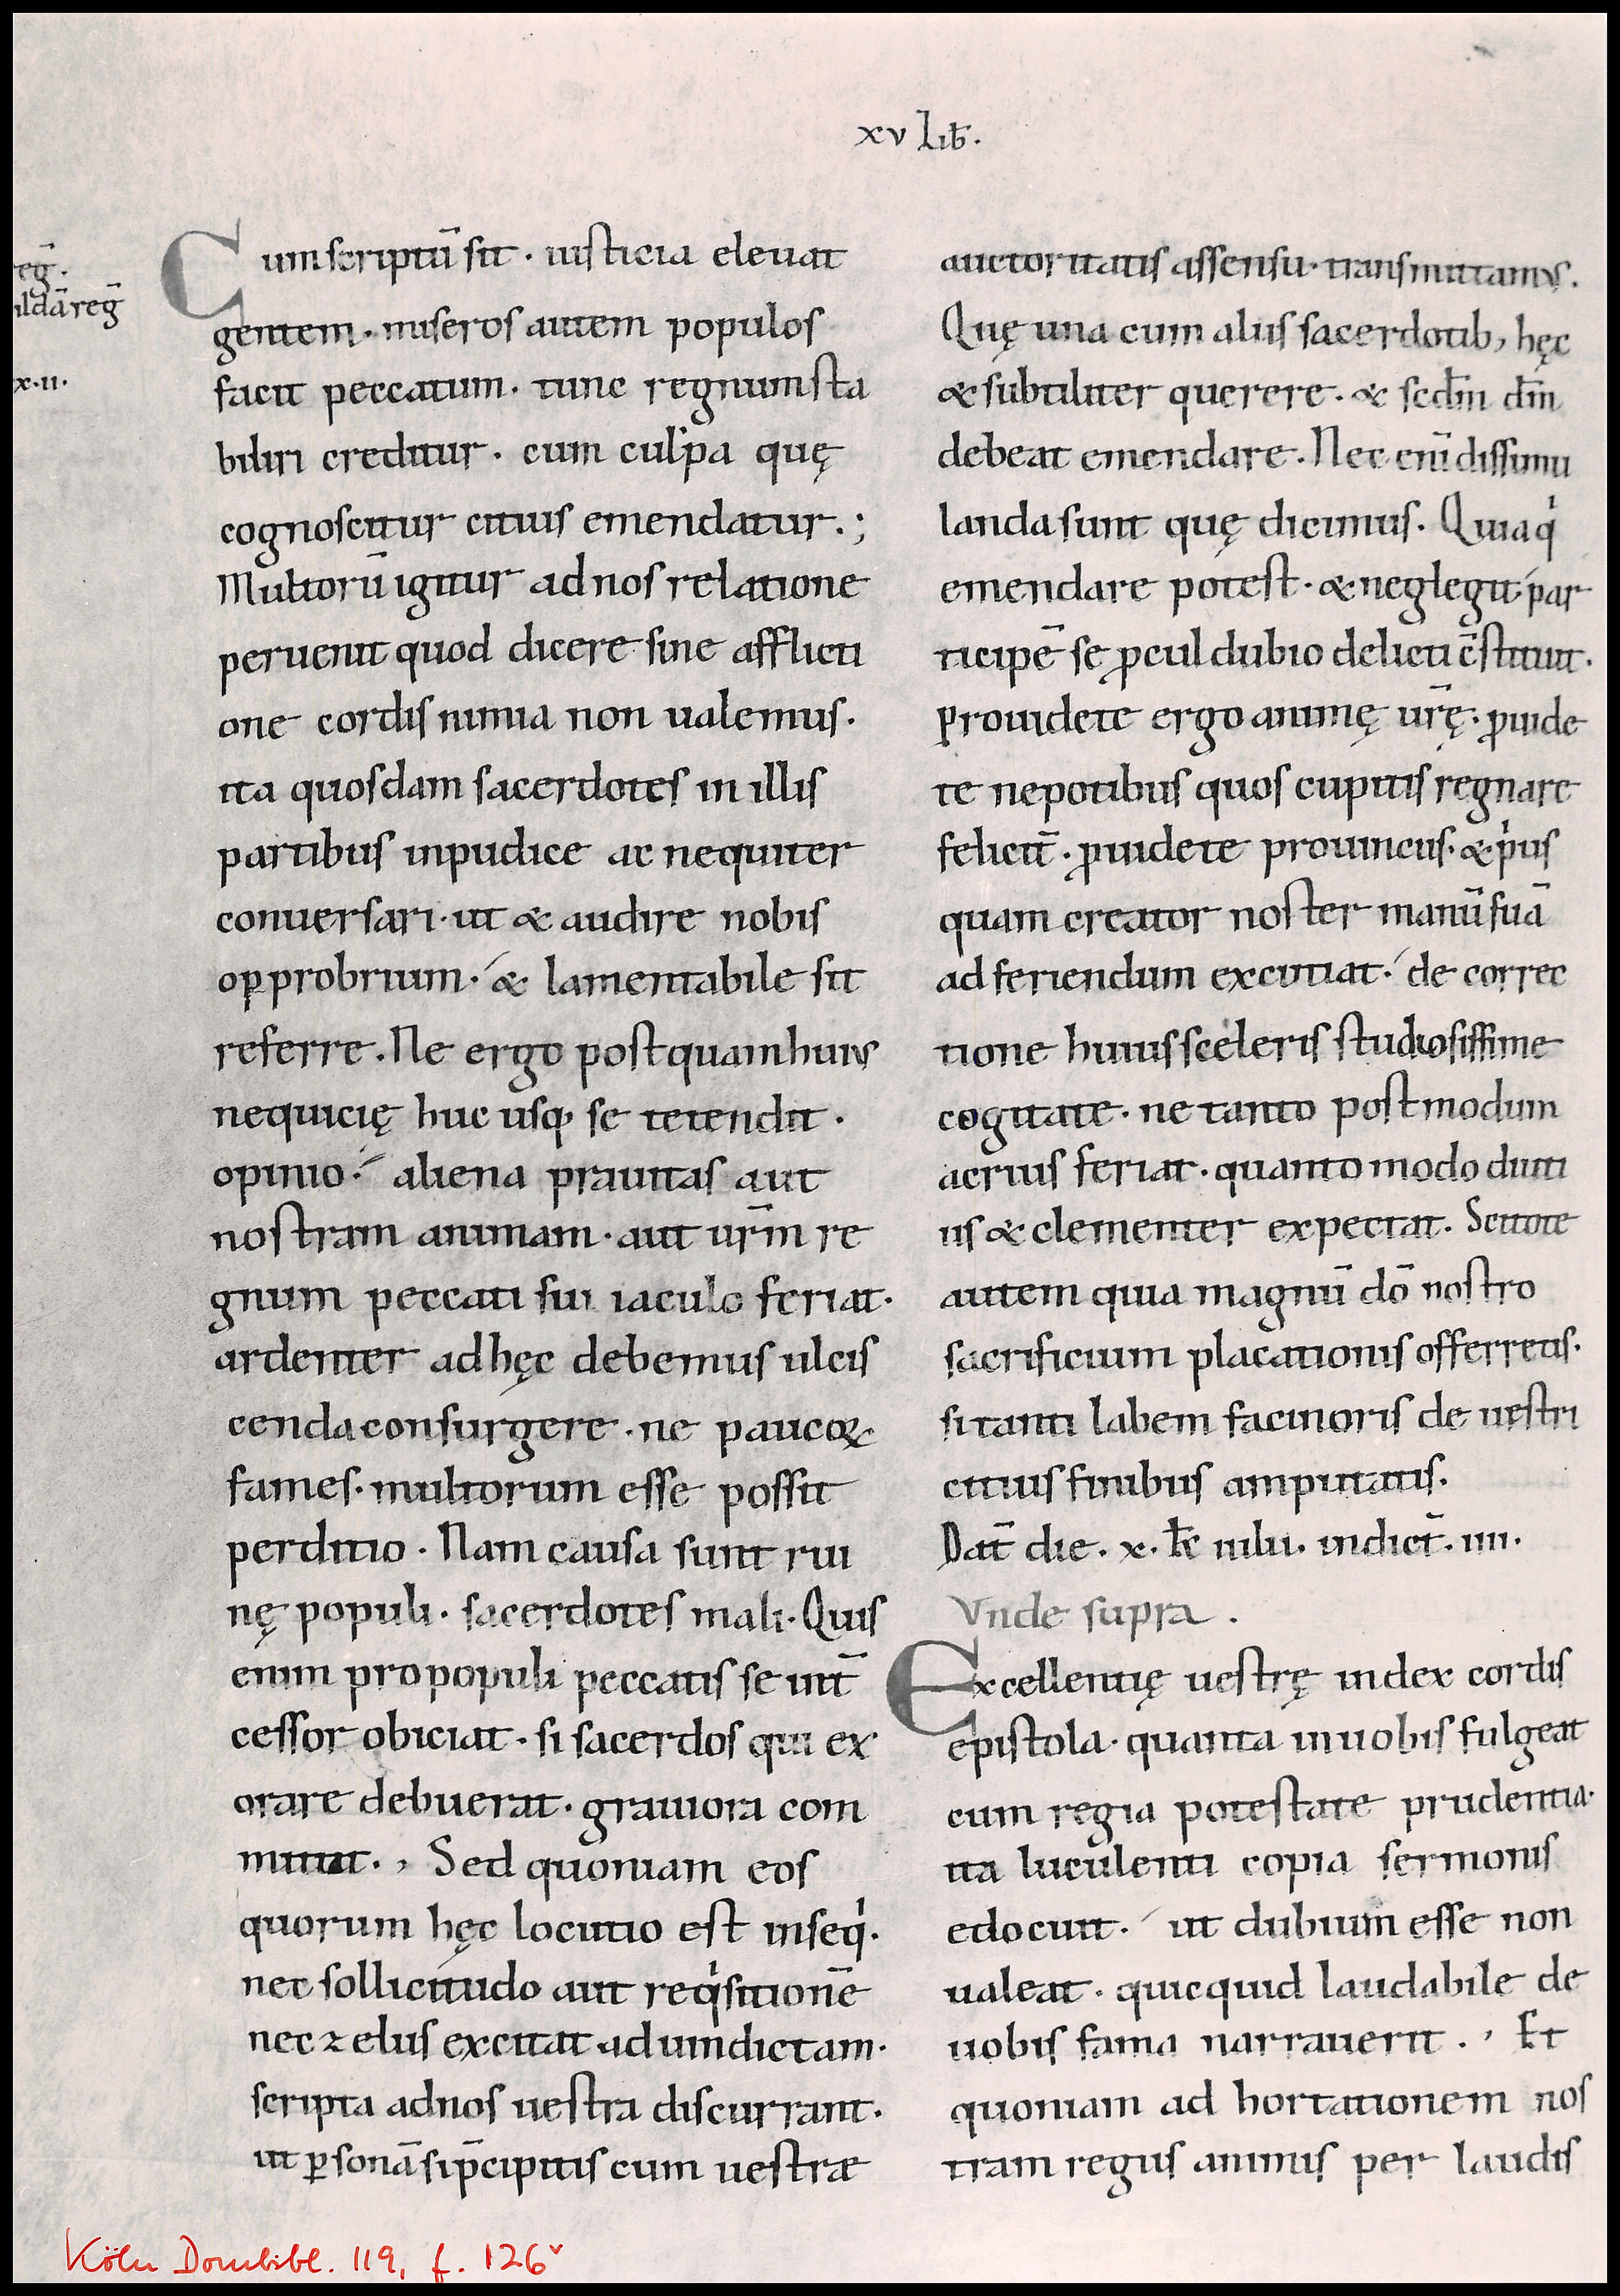 xv Lib̄.
eḡ.
ildā reḡ
x.ii.
Cum scriptū sit · iusticia eleuat
gentem · miseros autem populos
facit peccatum · tunc regnum sta
biliri creditur · cum culpa quę
cognoscitur citius emendatur.;
Multorū igitur ad nos relatione
peruenit quod dicere sine afflicti
one cordis nimia non ualemus.
ita quosdam sacerdotes in illis
partibus inpudice ac nequiter
conuersari · ut & audire nobis
opprobrium · & lamentabile sit
referre. Ne ergo postquam huius
nequicię huc usq; se tetendit ·
opinio · aliena prauitas aut
nostram animam · aut ur̄m re
gnum peccati sui iaculo feriat ·
ardenter ad hęc debemus ulcis
cenda consurgere · ne paucoꝝ
fames · multorum esse possit
perditio · Nam causa sunt rui
nę populi · sacerdotes mali · Quis
enim pro populi peccatis se int̄
cessor obiciat · si sacerdos qui ex
orare debuerat · grauiora com
mittat ·, Sed quoniam eos
quorum hęc locutio est inseqͥ ·
nec sollicitudo aut reqͥsitionē
nec zelus excitat ad uindictam ·
scripta ad nos uestra discurrant ·
ut ꝑsonā si p̄cipitis cum uestræ
auctoritatis assensu · transmittamus.
Quę una cum aliis sacerdotib; hęc
& subtiliter querere · & secđm dm̄
debeat emendare. Nec enī dissimu
landa sunt quę dicimus. Quia qͥ
emendare potest · & neglegit · par
ticipē se ꝓcul dubio delicti c̄stituit.
Prouidete ergo animę ur̄ę · ꝓuide
te nepotibus quos cupitis regnare
felicit̄ · ꝓuidete prouinciis · & pͥus
quam creator noster manū suā
ad feriendum excutiat · de correc
tione huius sceleris studiosissime
cogitate · ne tanto postmodum
acrius feriat · quanto modo diuti
us & clementer expectat. Scitote
autem quia magnū dō nostro
sacrificium placationis offerretis ·
si tanti labem facinoris de uestri
citius finibus amputatis.
Dat̄ die . x . kł iulii · indict̄ . iiii .
Vnde supra .
Excellentię uestrę index cordis
epistola · quanta in uobis fulgeat
cum regia potestate prudentia ·
ita luculenti copia sermonis
edocuit · ut dubium esse non
ualeat · quicquid laudabile de
uobis fama narrauerit ., Et
quoniam ad hortationem nos
tram regiis animis per laudis
Köln Dombibl. 119, f. 126ᵛ